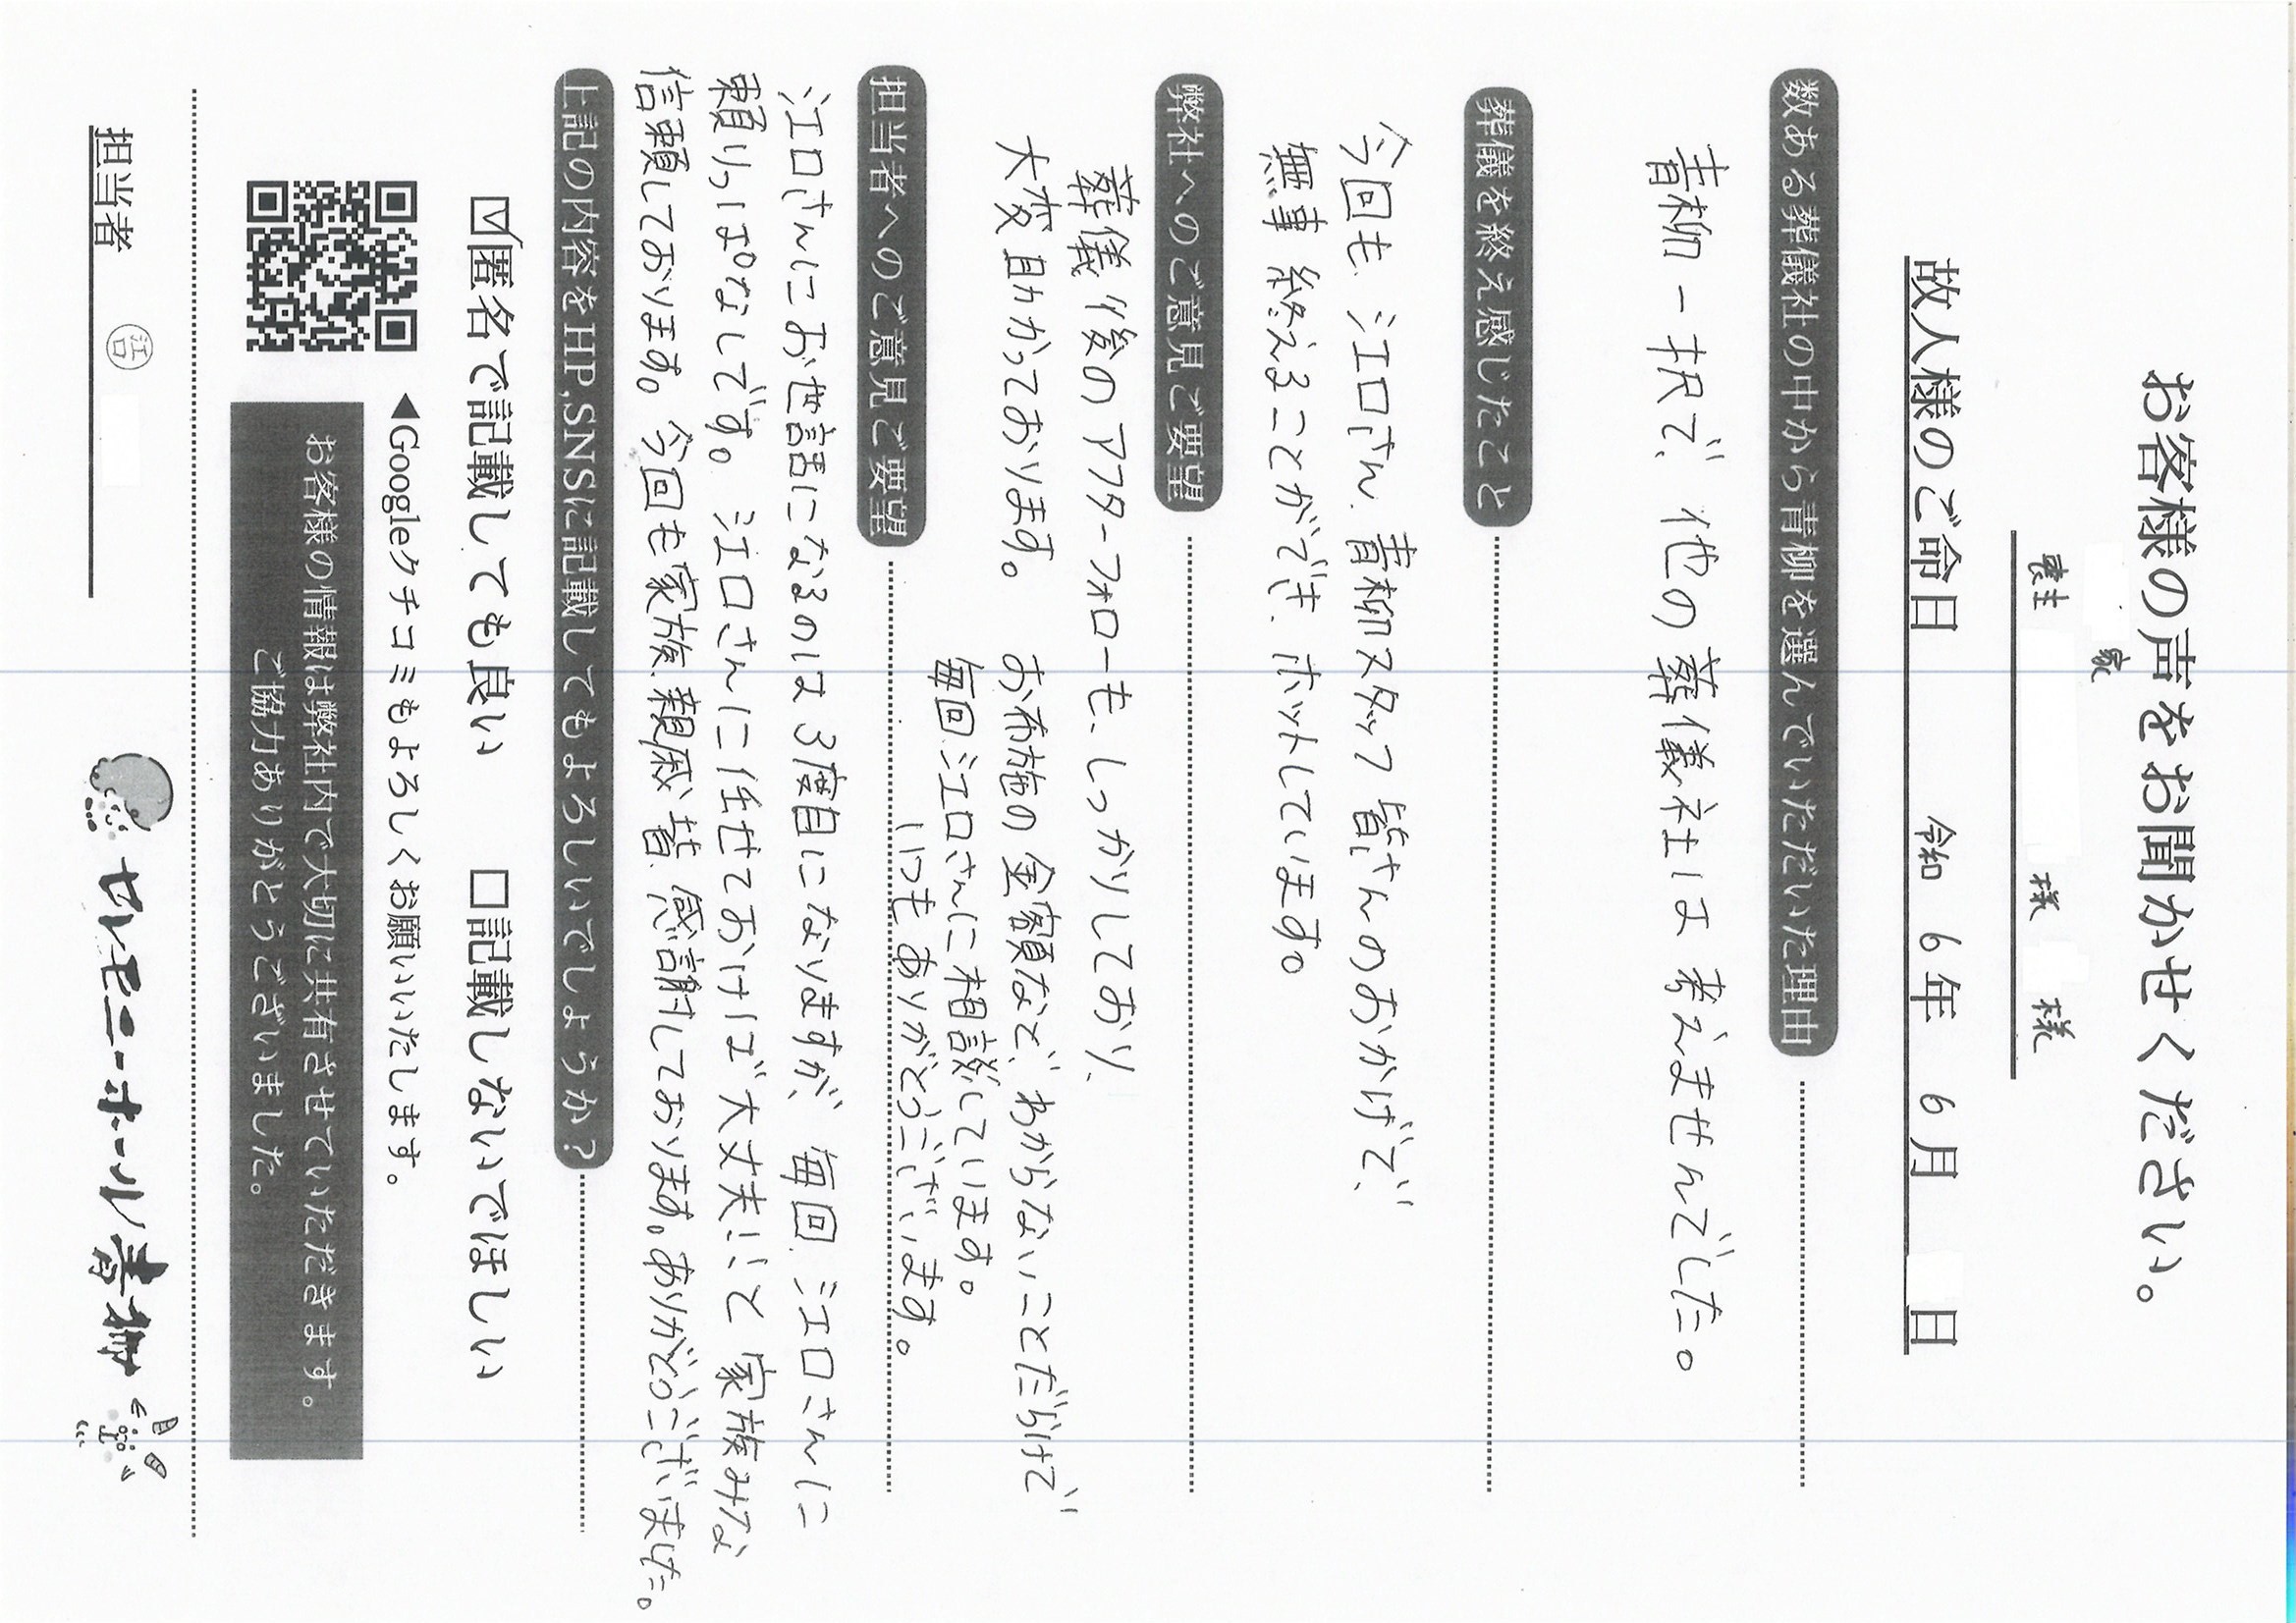 お客様の声をお聞かせください。
家
喪主 様 様
故人様のご命日 令和 6年 6月 日
数ある葬儀社の中から青柳を選んでいただいた理由
青柳一択で、他の葬儀社は考えませんでした。
葬儀を終え感じたこと
今回も、江口さん、青柳スタッフ皆さんのおかげで、
無事終えることができ、ホットしています。
弊社へのご意見ご要望
葬儀後のアフターフォローも、しっかりしており、
大変助かっております。
お布施の金額など、わからないことだらけで
毎回、江口さんに相談しています。
いつもありがとうございます。
担当者へのご意見ご要望
江口さんにお世話になるのは3度目になりますが、毎回、江口さんに
頼りっぱなしです。江口さんに任せておけば大丈夫!!と家族みな
信頼しております。今回も家族、親戚、皆、感謝しております。ありがとうございました。
上記の内容をHP,SNSに記載してもよろしいでしょうか?
☑匿名で記載しても良い □記載しないでほしい
◀Googleクチコミもよろしくお願いいたします。
お客様の情報は弊社内で大切に共有させていただきます。
ご協力ありがとうございました。
担当者 江口
セレモニーホール青柳